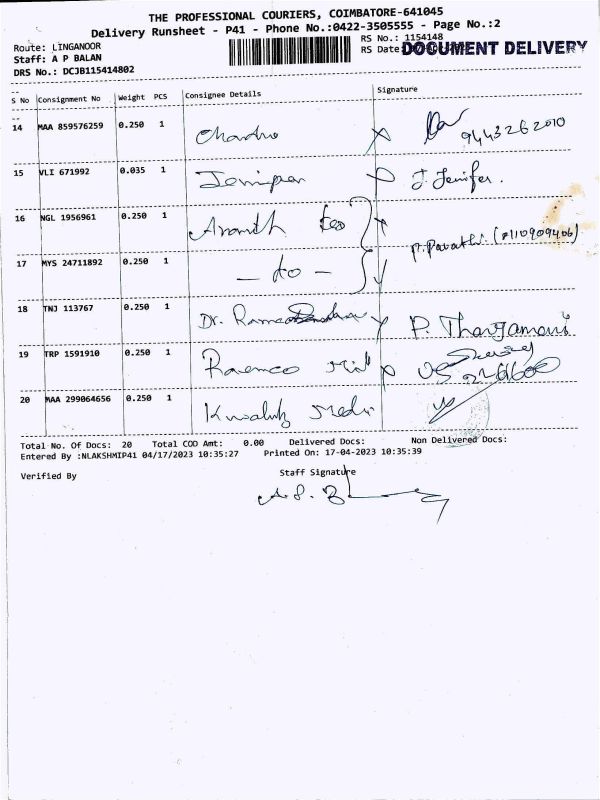 THE PROFESSIONAL COURIERS, COIMBATORE-641045
Delivery Runsheet - P41 - Phone No.:0422-3505555 - Page No.:2
Route: LINGANOOR
RS No.: 1154148
Staff: A P BALAN
RS Date:
DOCUMENT DELIVERY
DRS No.: DCJB115414802
S No Consignment No Weight PCS Consignee Details Signature
14 MAA 859576259 0.250 1
9443262010
15 VLI 671992 0.035 1 J. Jenifer.
16 NGL 1956961 0.250 1 Ananth
P. Parvathi.
17 MYS 24711892 0.250 1 - do -
18 TNJ 113767 0.250 1 Dr. P. Thangamani
19 TRP 1591910 0.250 1
20 MAA 299064656 0.250 1
Total No. Of Docs: 20 Total COD Amt: 0.00 Delivered Docs: Non Delivered Docs:
Entered By :NLAKSHMIP41 04/17/2023 10:35:27 Printed On: 17-04-2023 10:35:39
Verified By Staff Signature
A.P. B